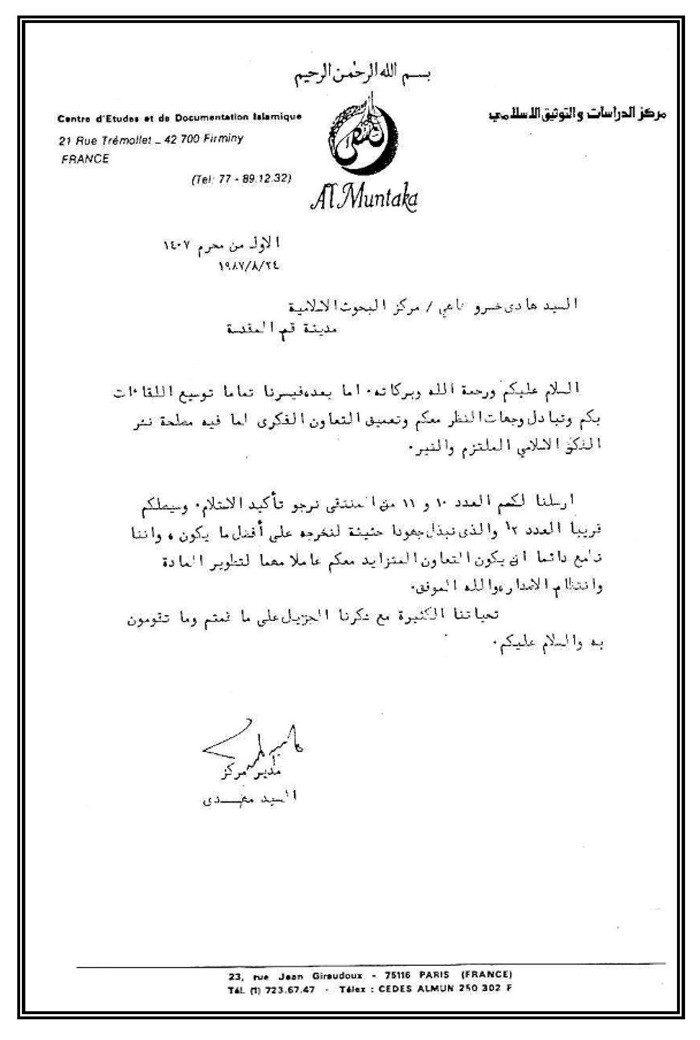 بسم الله الرحمن الرحيم
Centre d'Etudes et de Documentation Islamique
مركز الدراسات والتوثيق الاسلامي
21 Rue Trémollet _ 42 700 Firminy
FRANCE
(Tel: 77 - 89.12.32)
المنتقى
Al Muntaka
الاول من محرم ١٤٠٧
١٩٨٧/٨/٢٤
السيد هادى خسرو شاهي / مركز البحوث الاسلامية
مدينة قم المقدسة
السلام عليكم ورحمة الله وبركاته. اما بعد، فيسرنا تماما توسيع اللقاءات
بكم وتبادل وجهات النظر معكم وتعميق التعاون الفكرى لما فيه مصلحة نشر
الفكر الاسلامي الملتزم والنير.
ارسلنا لكم العدد ١٠ و ١١ من المنتقى نرجو تأكيد الاستلام. وسيصلكم
قريبا العدد ١٢ والذى نبذل جهودا حثيثة لنخرجه على أفضل ما يكون، واننا
دائما ان يكون التعاون المتزايد معكم عاملا مهما لتطوير المادة
وانتظام الاصدار، والله الموفق.
تحياتنا الكثيرة مع شكرنا الجزيل على ما قمتم وما تقومون
به والسلام عليكم.
مدير مركز
السيد
23, rue Jean Giraudoux - 75116 PARIS (FRANCE)
Tél. (1) 723.67.47 - Télex : CEDES ALMUN 250 302 F